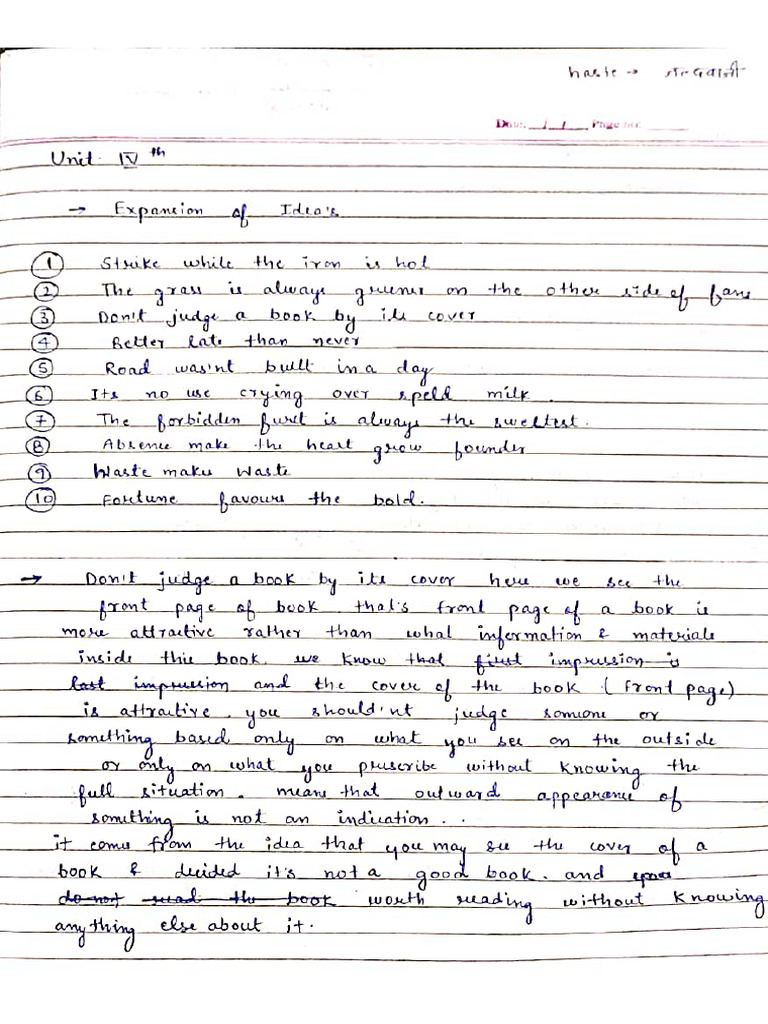 haste → जल्दबाजी
Date: __/__/____ Page no: ______
Unit IV th
→ Expansion of Idea's
1 Strike while the iron is hot
2 The grass is always greener on the other side of fans
3 Don't judge a book by its cover
4 Better late than never
5 Road was'nt built in a day
6 Its no use crying over speld milk.
7 The forbidden furit is always the sweltest.
8 Absence make the heart grow founder
9 Waste makes waste
10 Fortune favours the bold.
→ Don't judge a book by its cover here we see the
front page of book. that's front page of a book is
more attractive rather than what information & materials
inside this book. we know that first impression is
last impression and the cover of the book (front page)
is attractive. you should'nt judge someone or
something based only on what you see on the outside
or only on what you prescribe without knowing the
full situation. means that outward appearance of
something is not an indication..
it comes from the idea that you may see the cover of a
book & decided it's not a good book. and
do not read the book worth reading without knowing
anything else about it.